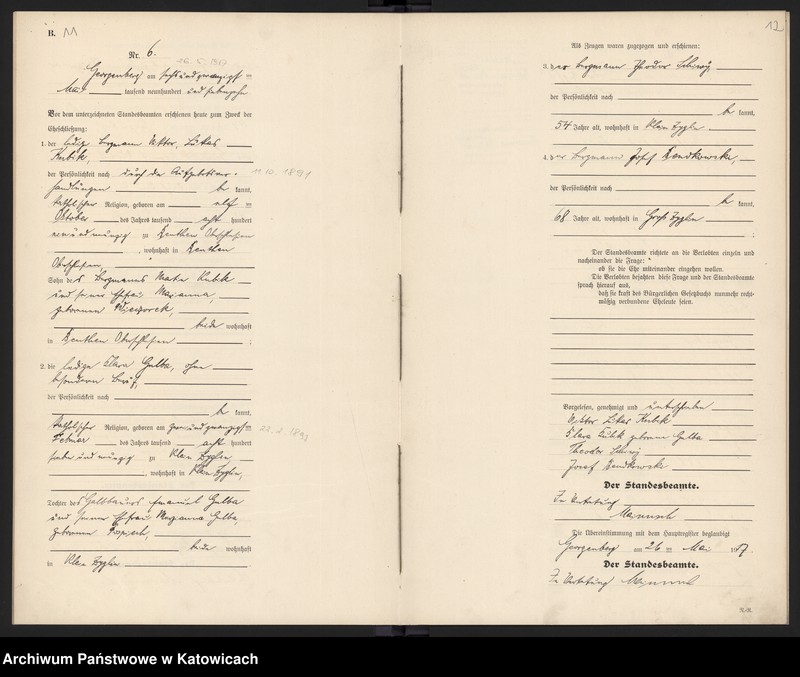 B.
Nr. 6.
Georgenberg am sechsundzwanzigsten
Mai tausend neunhundert und siebzehn
Vor dem unterzeichneten Standesbeamten erschienen heute zum Zweck der
Eheschließung:
1. der ledige Bergmann Viktor, Lukas
Kubik,
der Persönlichkeit nach durch die Aufgebotsver-
handlungen be kannt,
katholischer Religion, geboren am elften
Oktober des Jahres tausend acht hundert
zu Beuthen Oberschlesien
, wohnhaft in Beuthen
Oberschlesien,
Sohn des Bergmanns Martin Kubik
und seiner Ehefrau Marianna,
geborenen
beide wohnhaft
in Beuthen Oberschlesien ;
2. die ledige Klara Gulba, ohne
besonderen Beruf,
der Persönlichkeit nach
be kannt,
katholischer Religion, geboren am zweiundzwanzigsten
Februar des Jahres tausend acht hundert
zu Klein Zyglin
, wohnhaft in Klein Zyglin,
Tochter des Emanuel Gulba
und seiner Ehefrau Marianna Gulba,
geborenen
beide wohnhaft
in Klein Zyglin
12
Als Zeugen waren zugezogen und erschienen:
3. der Bergmann Theodor
der Persönlichkeit nach
be kannt,
54 Jahre alt, wohnhaft in Klein Zyglin
4. der Bergmann Josef Dendkowski,
der Persönlichkeit nach
be kannt,
68 Jahre alt, wohnhaft in Groß Zyglin
;
Der Standesbeamte richtete an die Verlobten einzeln und
nacheinander die Frage:
ob sie die Ehe miteinander eingehen wollen.
Die Verlobten bejahten diese Frage und der Standesbeamte
sprach hierauf aus,
daß sie kraft des Bürgerlichen Gesetzbuchs nunmehr recht-
mäßig verbundene Eheleute seien.
Vorgelesen, genehmigt und unterschrieben
Viktor Lukas Kubik
Klara Kubik geborene Gulba
Theodor
Josef Dendkowski
Der Standesbeamte.
In Vertretung
Die Übereinstimmung mit dem Hauptregister beglaubigt
Georgenberg am 26 ten Mai 1917
Der Standesbeamte.
In Vertretung
Archiwum Państwowe w Katowicach